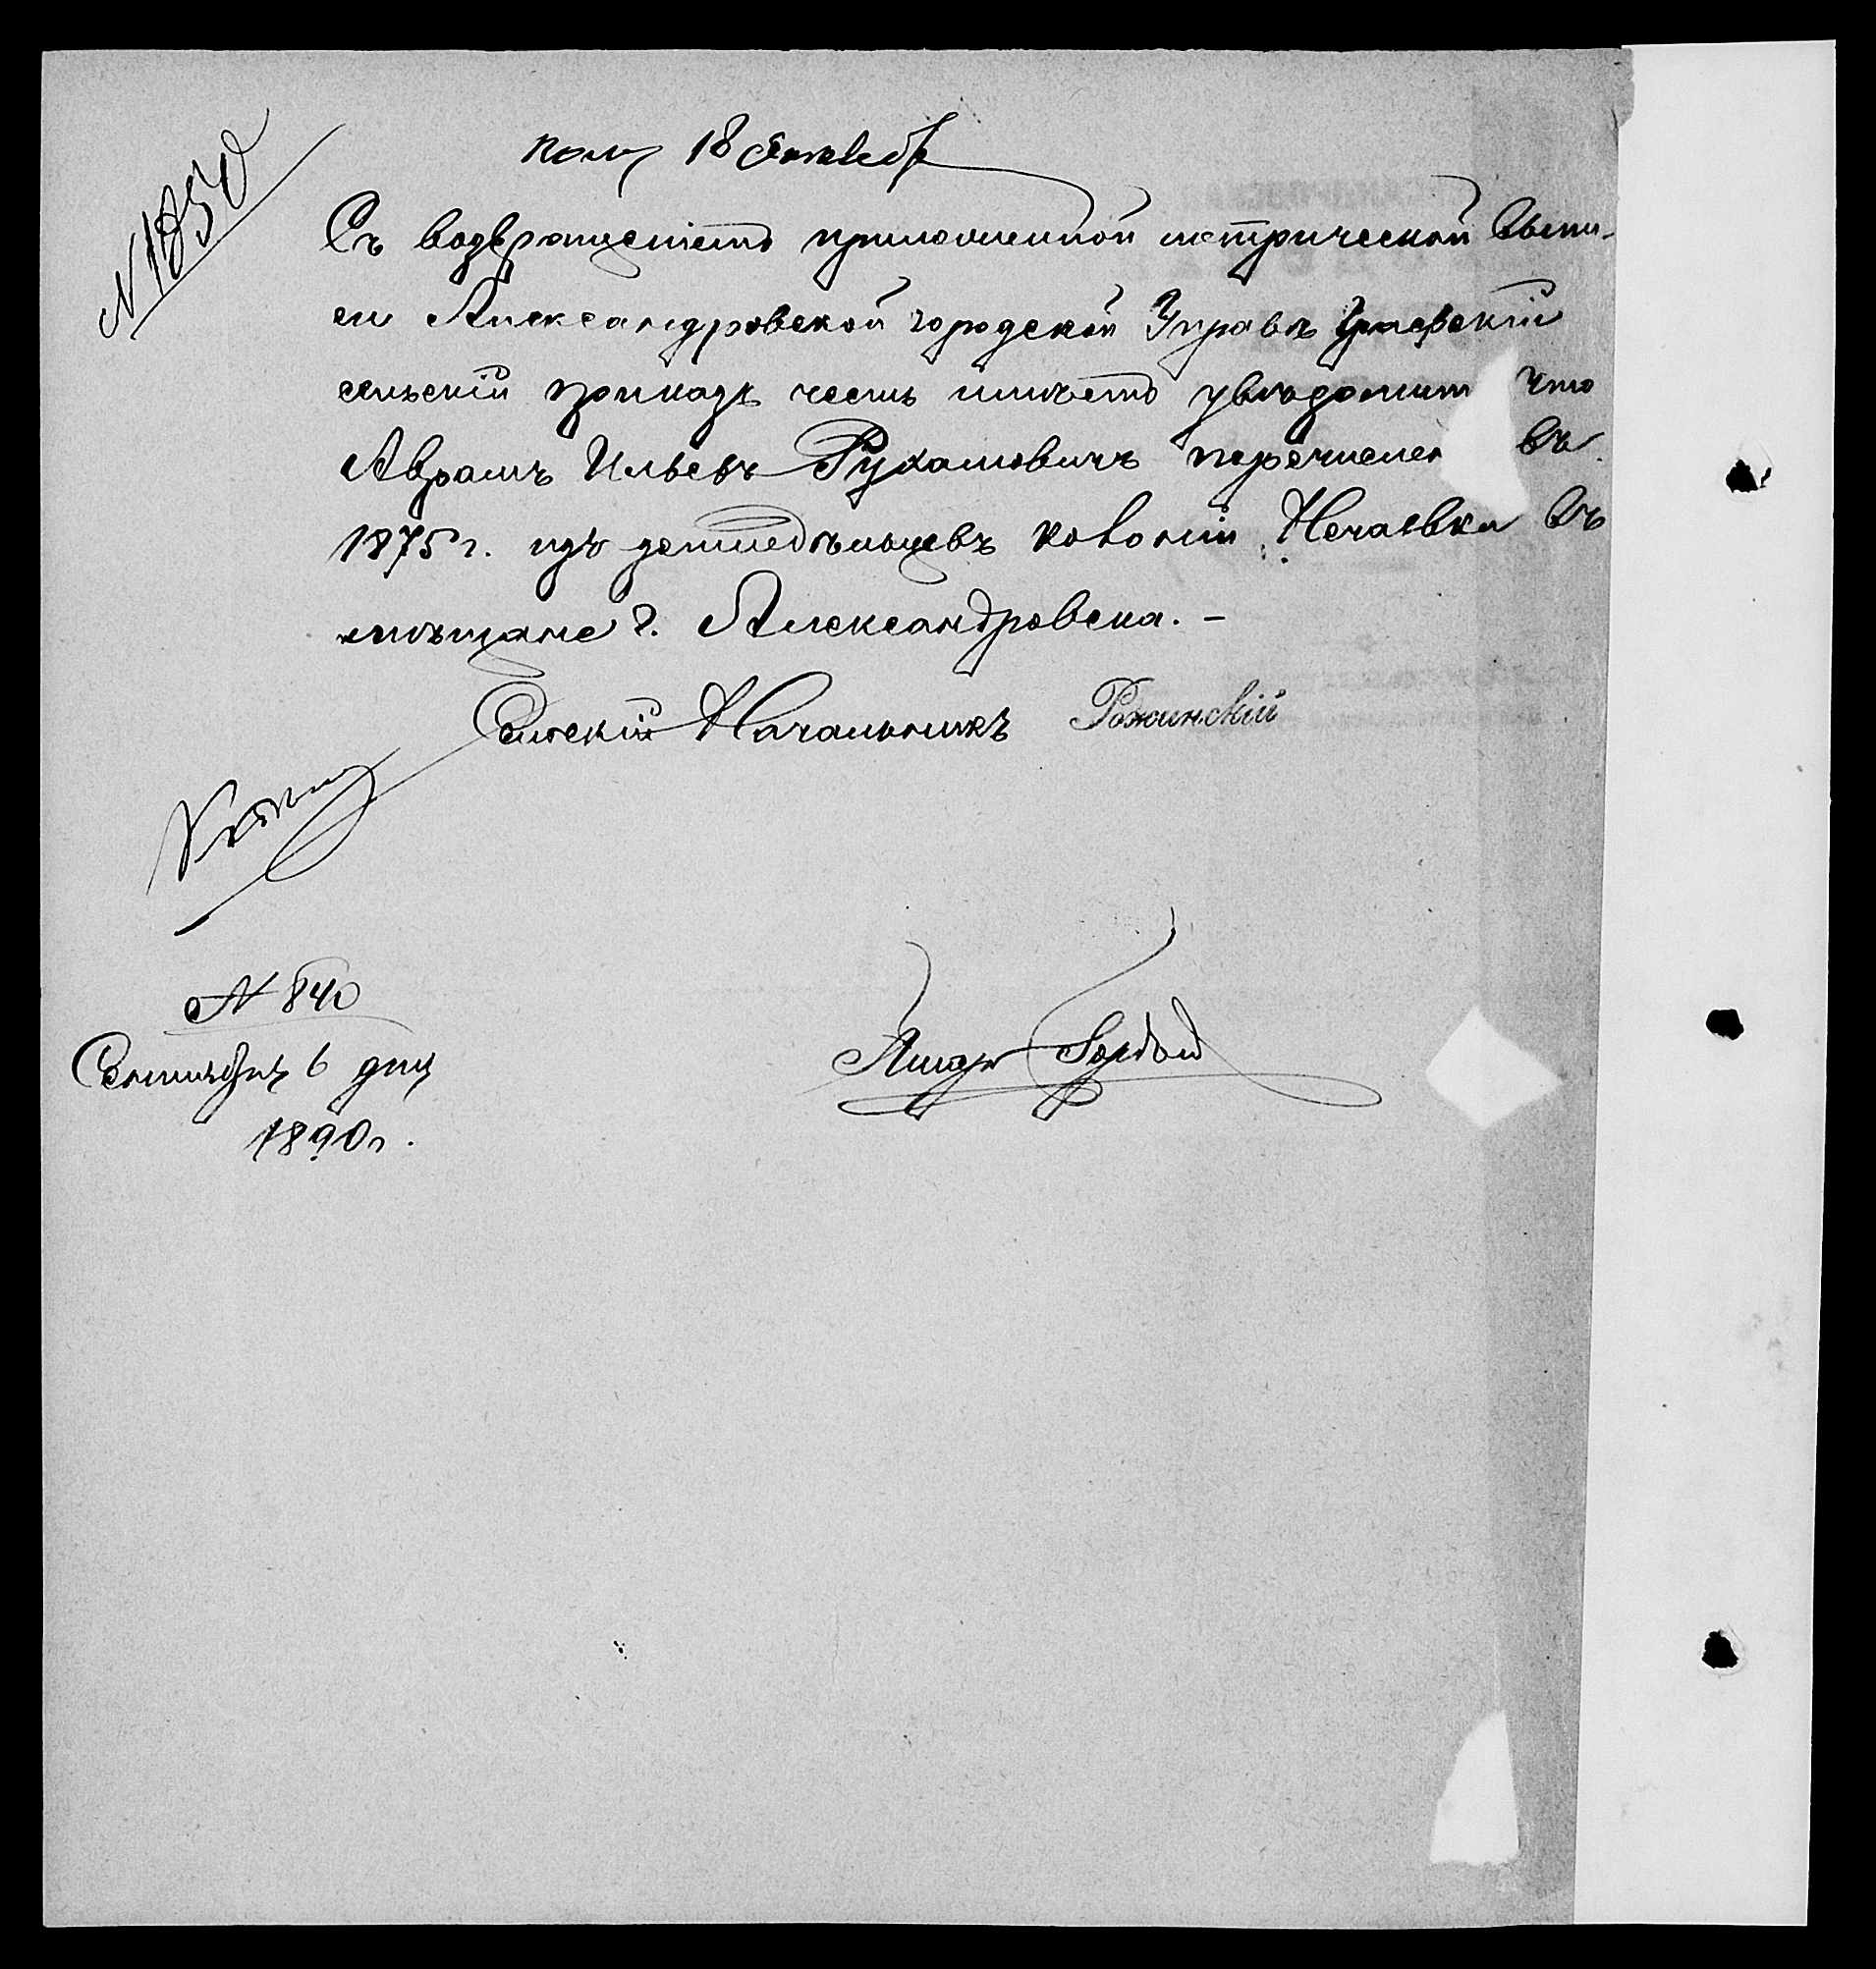 № 1850
пол 18 Октября
Съ возвращеніемъ приложенной метрической выпи-
си Александровской городской Управѣ Графскій
сельскій приказъ честь имѣетъ увѣдомит что
Аврамъ Ильевъ Рухамовичъ перечислен въ
1875 г. изъ земледѣльцевъ колоніи Нечаевки въ
мѣщане г. Александровска. –
Сельскій Начальникъ Рожинскій
№ 840
Сентября 6 дня
1890 г.